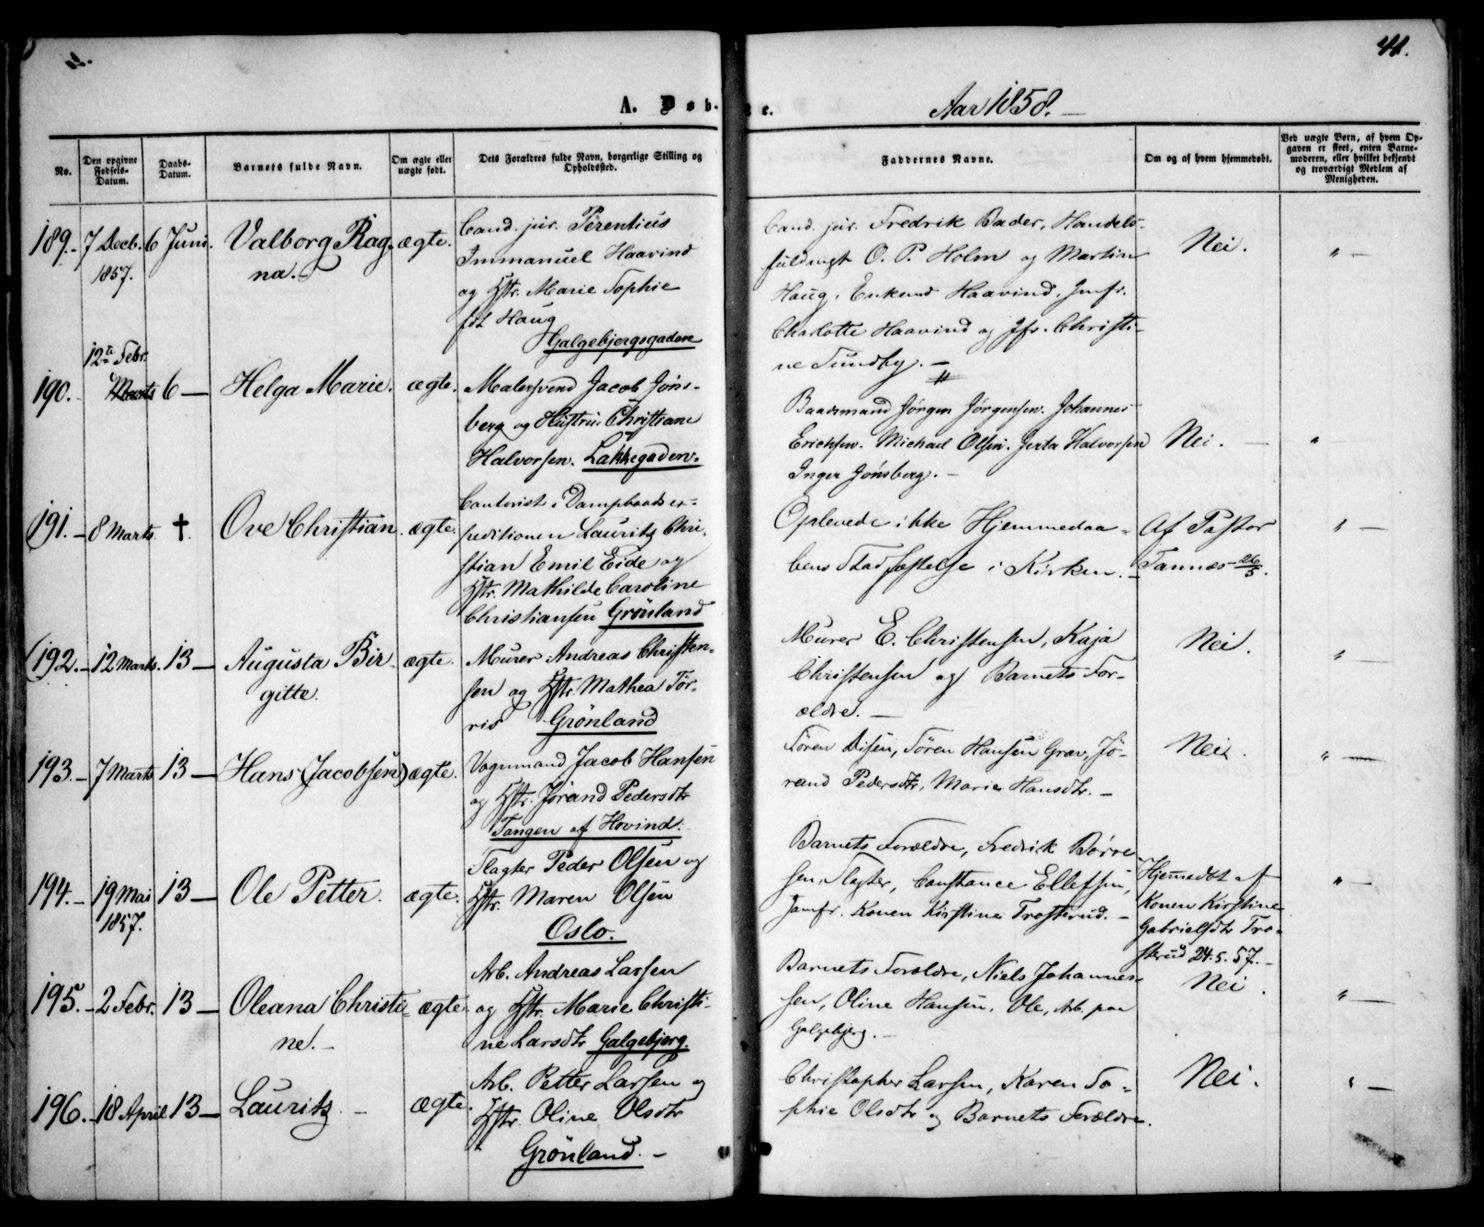 41.
A. Døb- te.
Aar 1858.
No.
Den opgivne Fødsels-Datum.
Daabs-Datum.
Barnets fulde Navn.
Om ægte eller uægte født.
Dets Forældres fulde Navn, borgerlige Stilling og Opholdssted.
Faddernes Navne.
Om og af hvem hjemmedøbt.
Ved uægte Børn, af hvem Opgaven er skeet, enten Barnemoderen, eller hvilket bekjendt og troværdigt Medlem af Menigheden.
189. 7 Decb. 6 Juni. Valborg Rag- ægte. Cand. jur. Terentius
1857. na. Immanuel Haavind
og Hstr. Marie Sophie
fdt Haug
Galgebjergsgaden
Cand. jur. Fredrik Bader, Handels-
fuldmgt O. P. Holm og Martin
Haug, Enkemd Haavind, Jmfr.
Charlotte Haavind og Jfr. Christi-
ne Sundby.
Nei. "
12te Febr.
190. Marts 6 Helga Marie. ægte. Malersvend Jacob Jøns-
berg og Hustru Christiane
Halvorsen. Lakkegaden.
Baadsmand Jørgen Jørgensen. Johannes
Erichsen. Michael Olsen. Halvorsen
Inger Jønsberg.
Nei. "
191. 8 Marts † Ove Christian. ægte. Contorist i Dampbaadsex-
peditionen Lauritz Chri-
stian Emil Eide og
Hstr. Mathilde Caroline
Christiansen Grønland
Oplevede ikke Hjemmedaa-
bens Stadfæstelse i Kirken.
Af Pastor
Tannæs 26/3.
"
192. 12 Marts 13 Augusta Bir- ægte. Murer Andreas Christen-
gitte. sen og Hstr. Mathea Tor-
ris Grønland
Murer E. Christensen, Kaja
Christensen og Barnets For-
ældre.
Nei. "
193. 7 Marts 13 Hans (Jacobsen) ægte. Vognmand Jacob Hansen
og Hstr. Jørand Pedersdtr
Tangen af Hovind.
Søren Disen, Søren Hansen Grav, Jø-
rand Pedersdtr, Marie Hansdtr.
Nei. "
194. 19 Mai 13 Ole Petter. ægte. Slagter Peder Olsen og
1857. Hstr. Maren Olsen
Oslo.
Barnets Forældre, Fredrik Børre-
sen, Slagter, Constance Ellefsen,
Jomfr. Konen Kirstine Trosterud.
Hjemmedbt af
Konen Kirstine
Gabrielsdtr Tro-
sterud 24.5.57.
"
195. 2 Febr. 13 Oleana Christi- ægte. Arb. Andreas Larsen
ne. og Hstr. Marie Christi-
ne Larsdtr Galgebjerg.
Barnets Forældre, Niels Johannes-
sen, Oline Hansen, Ole, Arb. paa
Galgebjerg.
Nei. "
196. 18 April 13 Lauritz. ægte. Arb. Petter Larsen og
Hstr. Oline Olsdtr
Grønland.
Christopher Larsen, Karen So-
phie Olsdtr og Barnets Forældre.
Nei. "